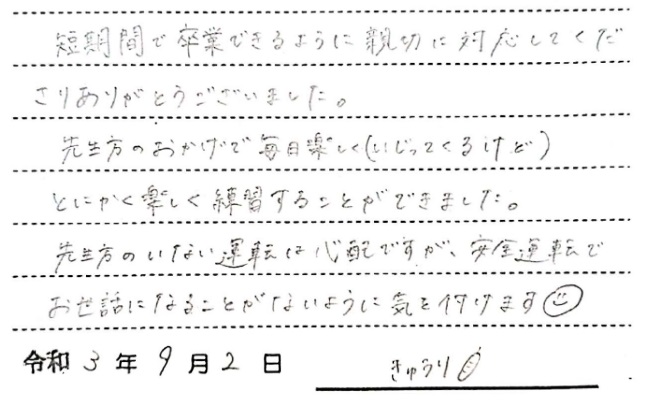 短期間で卒業できるように親切に対応してくだ
さりありがとうございました。
先生方のおかげで毎日楽しく(いじってくるけど)
とにかく楽しく練習することができました。
先生方のいない運転は心配ですが、安全運転で
お世話になることがないように気を付けます
令和3年9月2日 きゅうり